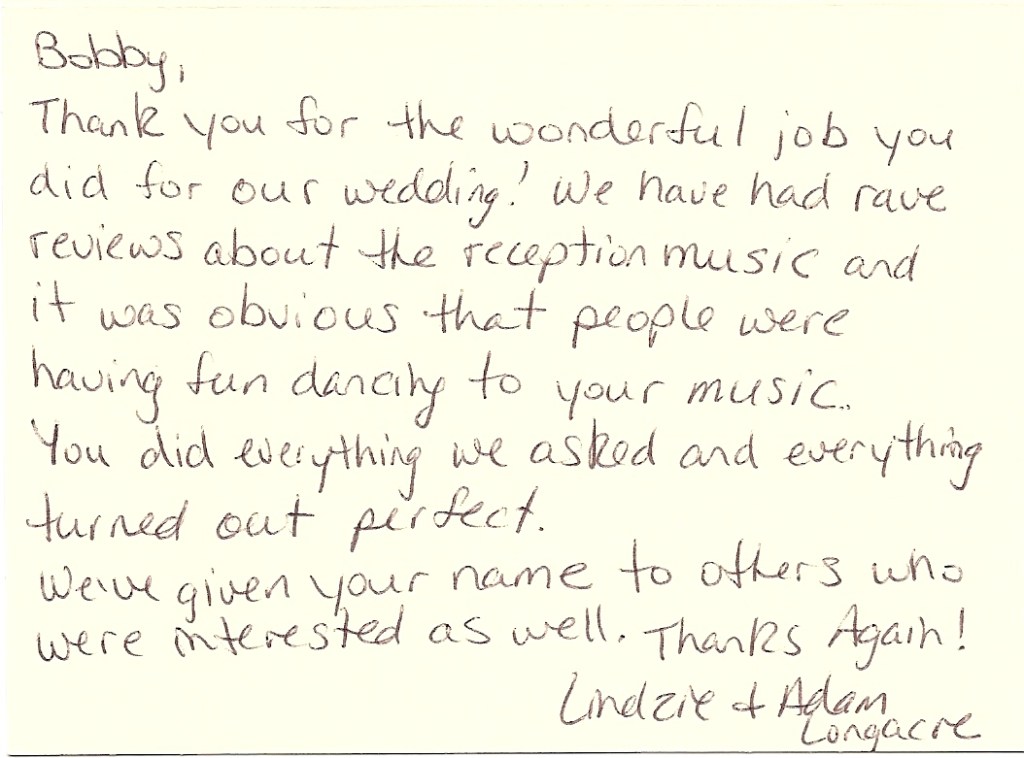 Bobby,
Thank you for the wonderful job you
did for our wedding! We have had rave
reviews about the reception music and
it was obvious that people were
having fun dancing to your music..
You did everything we asked and everything
turned out perfect.
We've given your name to others who
were interested as well. Thanks Again!
Lindzie + Adam
Longacre